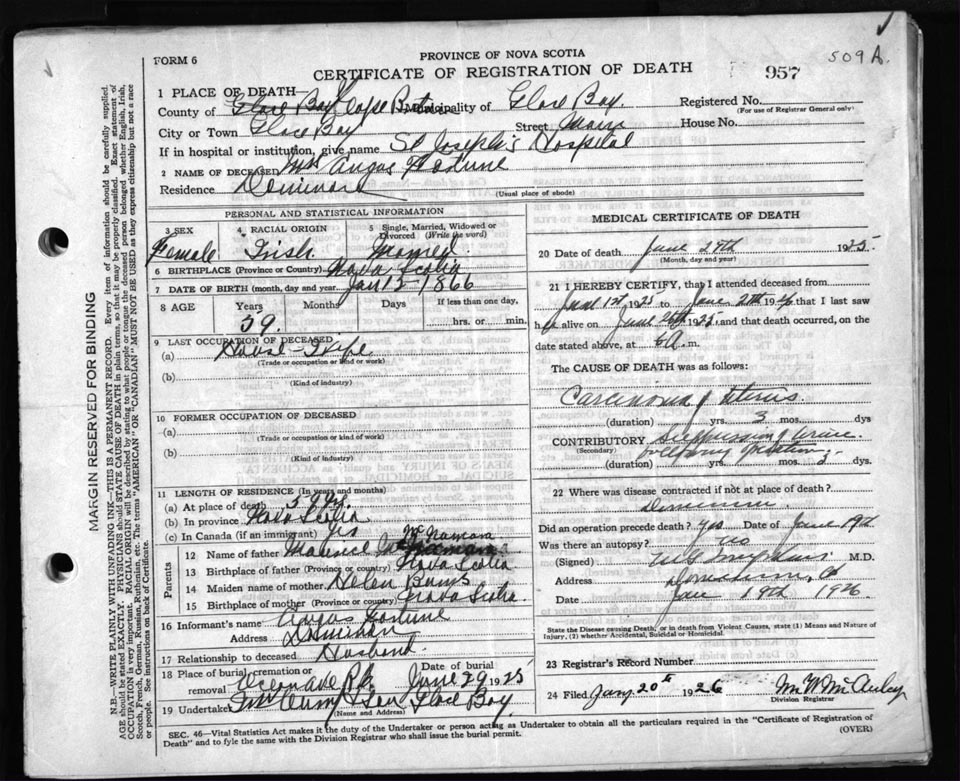 509A.
PROVINCE OF NOVA SCOTIA
FORM 6
CERTIFICATE OF REGISTRATION OF DEATH
957
1 PLACE OF DEATH
County of Glace Bay Cape Breton Municipality of Glace Bay. Registered No.
(For use of Registrar General only)
City or Town Glace Bay Street Main House No.
If in hospital or institution, give name St Joseph's Hospital
2 NAME OF DECEASED Mrs Angus Fortune
Residence Dominion
(Usual place of abode)
PERSONAL AND STATISTICAL INFORMATION
3 SEX Female
4 RACIAL ORIGIN Irish
5 Single, Married, Widowed or Divorced (Write the word) Married.
6 BIRTHPLACE (Province or Country) Nova Scotia
7 DATE OF BIRTH (month, day and year) Jan 12 - 1866
8 AGE Years 59. Months Days If less than one day,
hrs. or min.
9 LAST OCCUPATION OF DECEASED
(a) House-Wife
(Trade or occupation or kind or work)
(b)
(Kind of industry)
10 FORMER OCCUPATION OF DECEASED
(a)
(Trade or occupation or kind of work)
(b)
(Kind of industry)
11 LENGTH OF RESIDENCE (In years and months)
(a) At place of death 59 yrs.
(b) In province Nova Scotia
(c) In Canada (if an immigrant) yes
Parents
12 Name of father McNamara
13 Birthplace of father (Province or Country) Nova Scotia
14 Maiden name of mother Helen Burns
15 Birthplace of mother (Province or Country) Nova Scotia
16 Informant's name Angus Fortune
Address Dominion
17 Relationship to deceased Husband.
18 Place of burial, cremation or removal Ocean Ave R/c Date of burial June 29 1925
19 Undertaker & Son Glace Bay.
(Name and Address)
MEDICAL CERTIFICATE OF DEATH
20 Date of death June 27th 1925.
(Month, day and year)
21 I HEREBY CERTIFY, that I attended deceased from
June 1st 1925 to June 27th 1926 that I last saw
her alive on June 26th 1925, and that death occurred, on the
date stated above, at m.
The CAUSE OF DEATH was as follows:
Carcinoma of Uterus.
(duration) yrs. 3 mos. dys
CONTRIBUTORY Suppression of Urine
(Secondary) following Operation
(duration) yrs. mos. dys.
22 Where was disease contracted if not at place of death?
Dominion.
Did an operation precede death? yes Date of June 19th
Was there an autopsy? no
(Signed) M.D.
Address Dominion, CB
Date Jan 19th 1926
State the Disease causing Death, or in death from Violent Causes, state (1) Means and Nature of
Injury, (2) whether Accidental, Suicidal or Homicidal.
23 Registrar's Record Number
24 Filed Jany 20th 1926 M W McAuley
Division Registrar
SEC. 46—Vital Statistics Act makes it the duty of the Undertaker or person acting as Undertaker to obtain all the particulars required in the "Certificate of Registration of
Death" and to fyle the same with the Division Registrar who shall issue the burial permit.
(OVER)
MARGIN RESERVED FOR BINDING
N.B.—WRITE PLAINLY WITH UNFADING INK—THIS IS A PERMANENT RECORD. Every item of information should be carefully supplied.
AGE should be stated EXACTLY. PHYSICIANS should STATE CAUSE OF DEATH in plain terms, so that it may be properly classified. Exact statement of
OCCUPATION is very important. RACIAL ORIGIN will be described by stating to what people or tongue the deceased person belonged whether English, Irish,
Scotch, French, German, Russian, Ruthenian, etc. The terms "AMERICAN" OR "CANADIAN" MUST NOT BE USED as they express citizenship but not a race
or people. See instructions on back of Certificate.